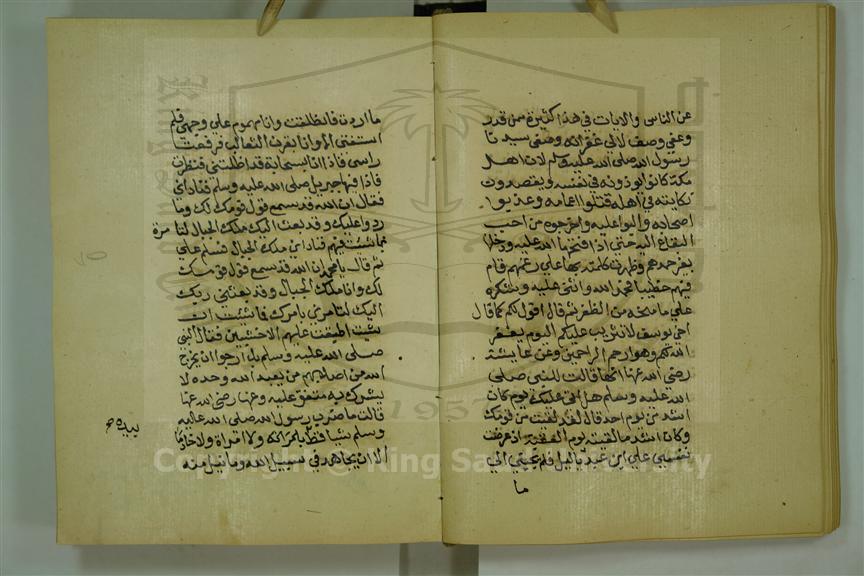 عن الناس والايات في هذا كثيرة فمن قدر
وعفي وصف لاني غفر الله وصفي سيدنا
رسول الله صلي الله عليه وسلم لان اهل
مكة كانوا يوذونه في نفسه ويقصدون
نكايته في اهله قتلوا اعمامه وعذبوا
اصحابه والبوا عليه واخرجوه من احب
البقاع اليه حتي اذا افتحها الله عليه ودخلها
بغير حمدهم وظهرت كلمته بها علي رغمهم قام
فيهم خطيبا فحمد الله واثني عليه وشكره
علي ما منحه من الظفر ثم قال اقول لكم كما قال
اخي يوسف لا تثريب عليكم اليوم يغفر
الله لكم وهو ارحم الراحمين وعن عايشة
رضي الله عنها انها قالت للنبي صلي
الله عليه وسلم هل اتي عليك يوم كان
اشد من يوم احد قال لقد لقيت من قومك
وكان اشد ما لقيت يوم العقبة اذ عرضت
نفسي علي ابن عبد ياليل فلم يجبني الي
ما
ما اردت فانطلقت وانا مهموم علي وجهي فلم
استفق الا وانا بقرن الثعالب فرفعت
راسي فاذا انا بسحابة قد اظلتني فنظرت
فاذا فيها جبريل صلي الله عليه وسلم فناداني
فقال ان الله قد سمع قول قومك لك وما
ردوا عليك وقد بعث اليك ملك الجبال لتامره
بما شئت فيهم فناداني ملك الجبال فسلم علي
ثم قال يا محمد ان الله قد سمع قول قومك
لك وانا ملك الجبال وقد بعثني ربك
اليك لتامرني بامرك فما شئت ان
شئت اطبقت عليهم الاخشبين فقال النبي
صلي الله عليه وسلم بل ارجوا ان يخرج
الله من اصلابهم من يعبد الله وحده لا
يشرك به متفق عليه وعنها رضي الله عنها
قالت ما ضرب رسول الله صلي الله عليه
وسلم شيا قط بيده ولا امراة ولا خادما
الا ان يجاهد في سبيل الله وما نيل منه
بيده صح
Copyright © King Saud University
1957